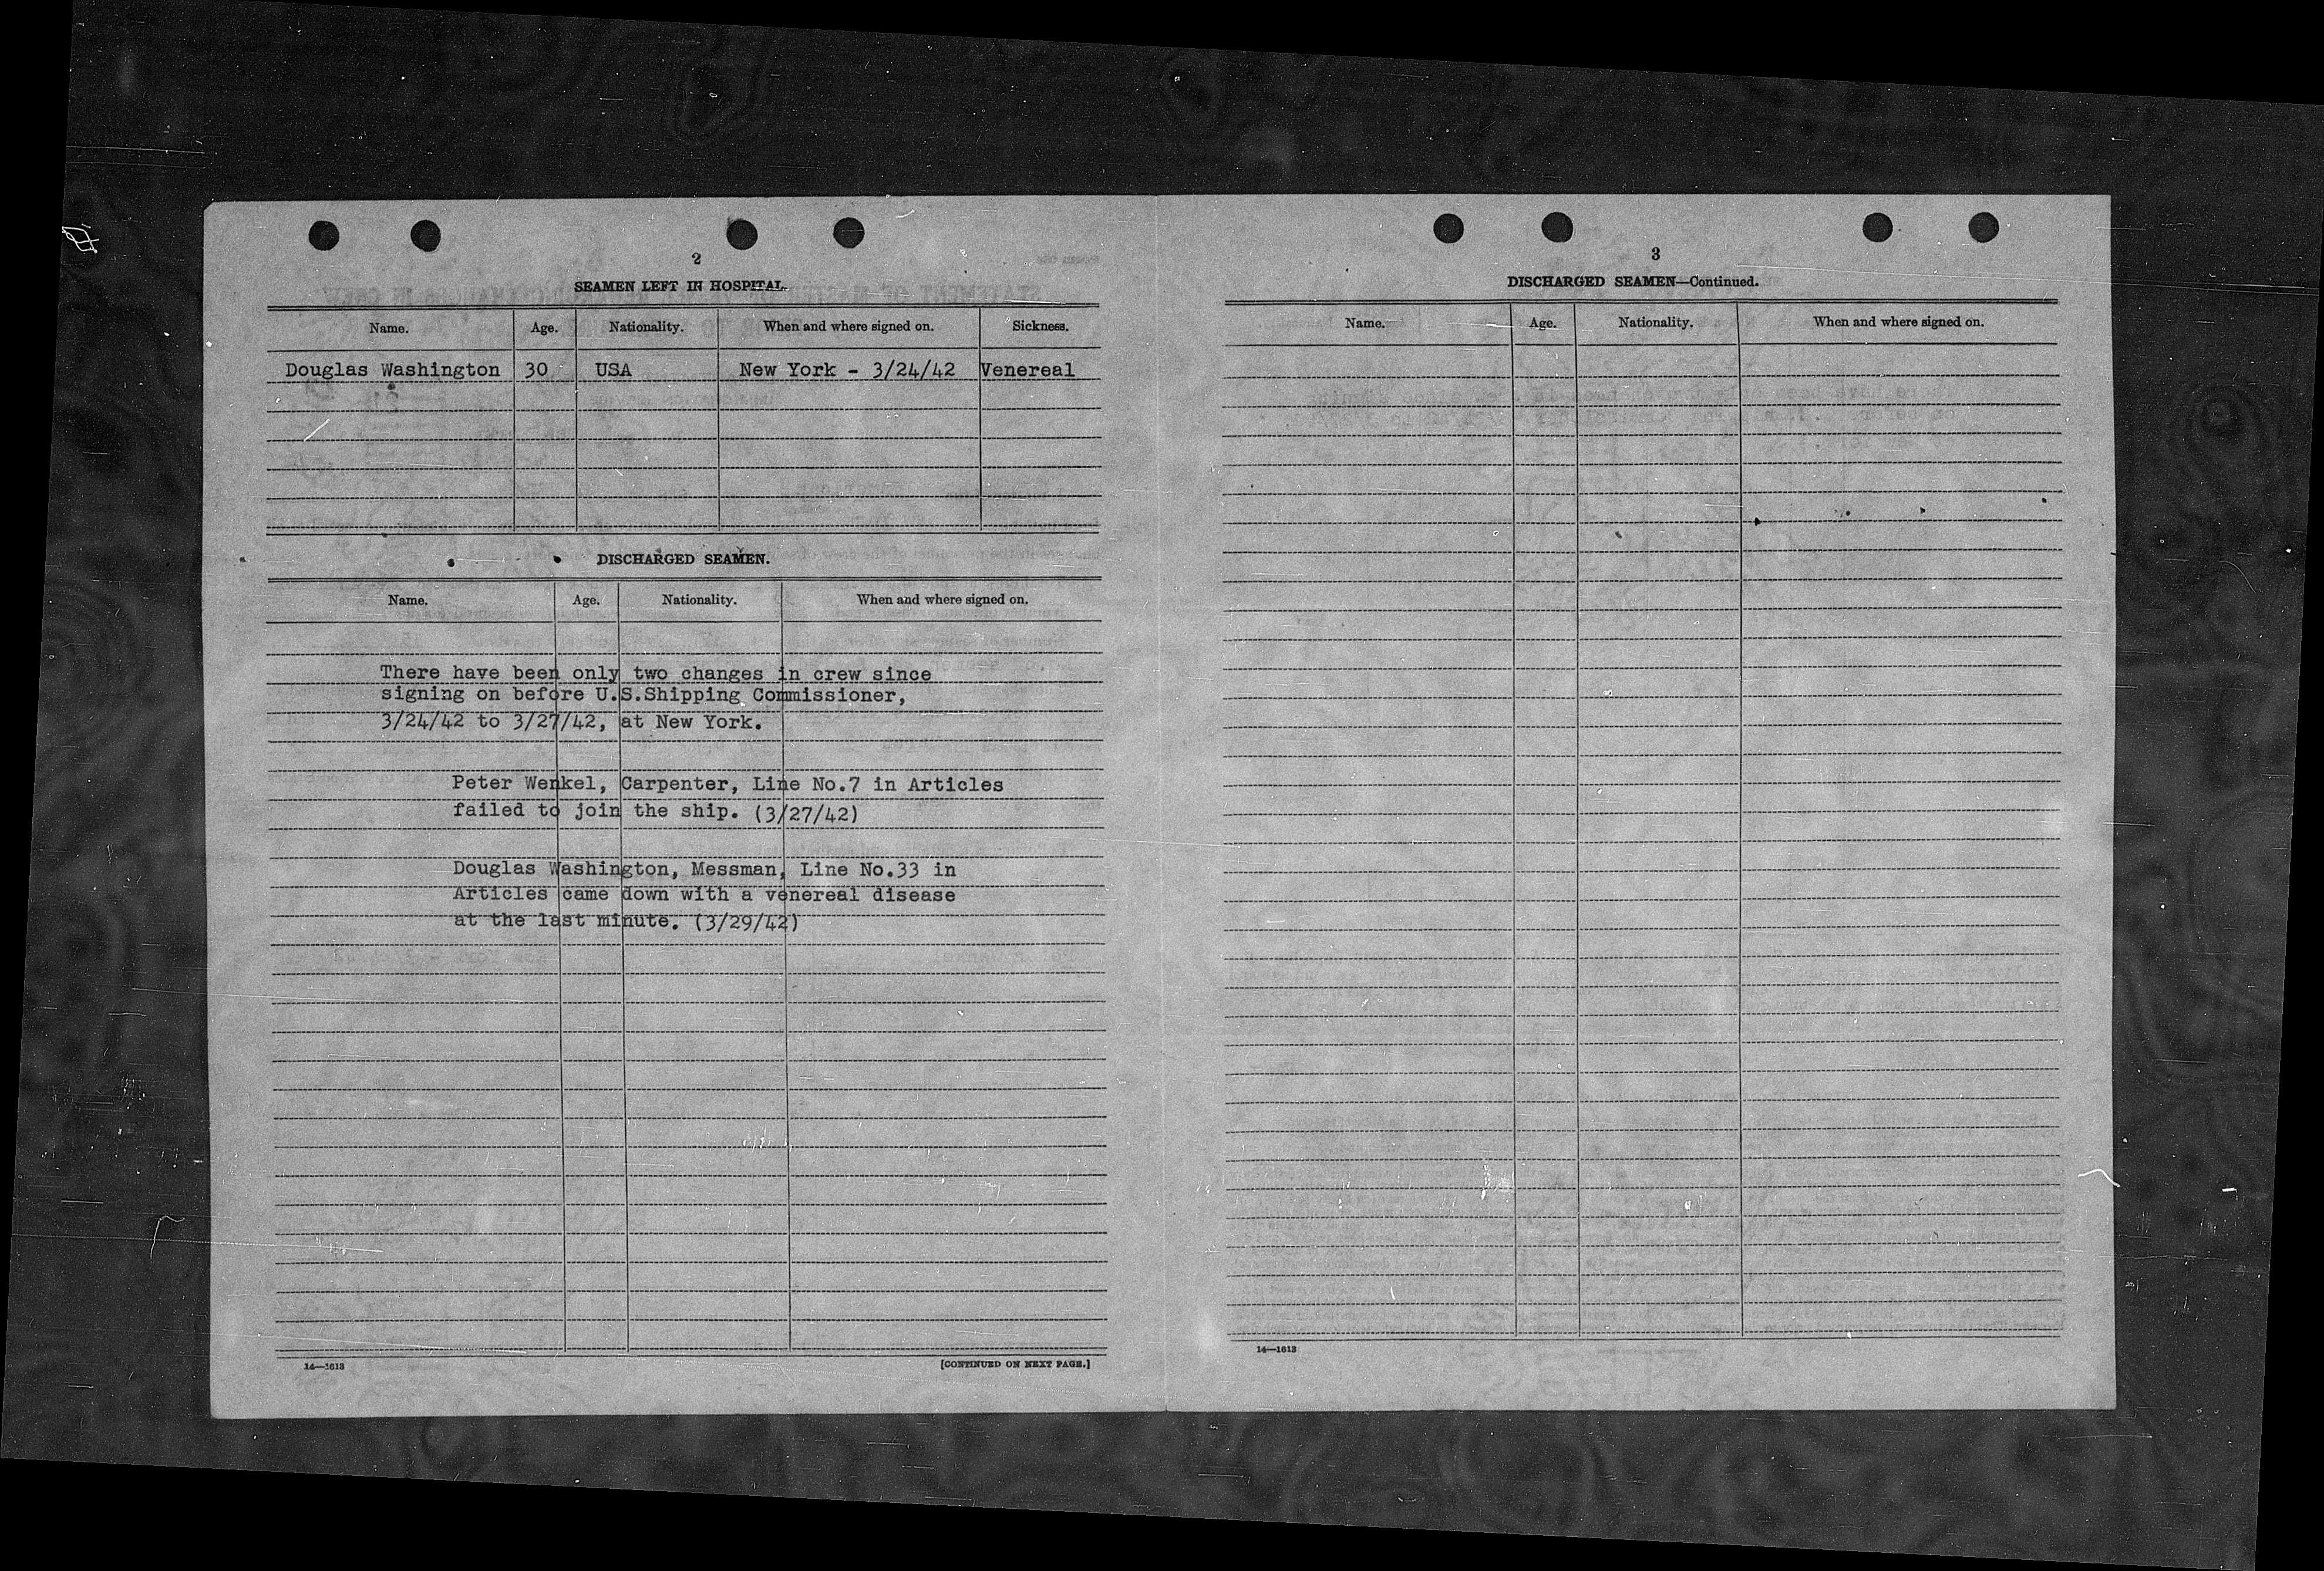 2
SEAMEN LEFT IN HOSPITAL.
Name. Age. Nationality. When and where signed on. Sickness.
Douglas Washington 30 USA New York - 3/24/42 Venereal
DISCHARGED SEAMEN.
Name. Age. Nationality. When and where signed on.
There have been only two changes in crew since
signing on before U.S.Shipping Commissioner,
3/24/42 to 3/27/42, at New York.
Peter Wenkel, Carpenter, Line No.7 in Articles
failed to join the ship. (3/27/42)
Douglas Washington, Messman, Line No.33 in
Articles came down with a venereal disease
at the last minute. (3/29/42)
14—1613
[CONTINUED ON NEXT PAGE.]
3
DISCHARGED SEAMEN—Continued.
Name. Age. Nationality. When and where signed on.
14—1613